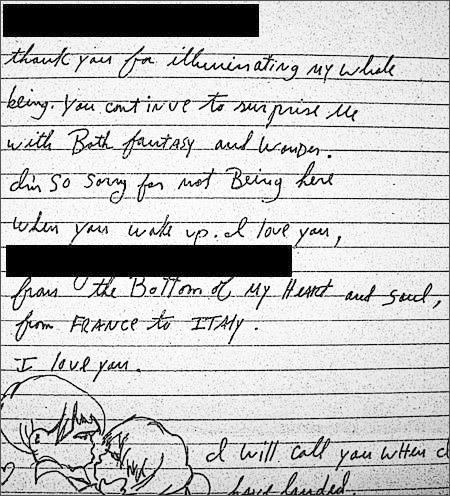 thank you for illuminating my whole
being. You continue to surprise me
with Both fantasy and Wonder.
I'm so sorry for not Being here
when you wake up. I love you,
from the Bottom of My Heart and soul,
from FRANCE to ITALY.
I love you.
I will call you when I
have landed.